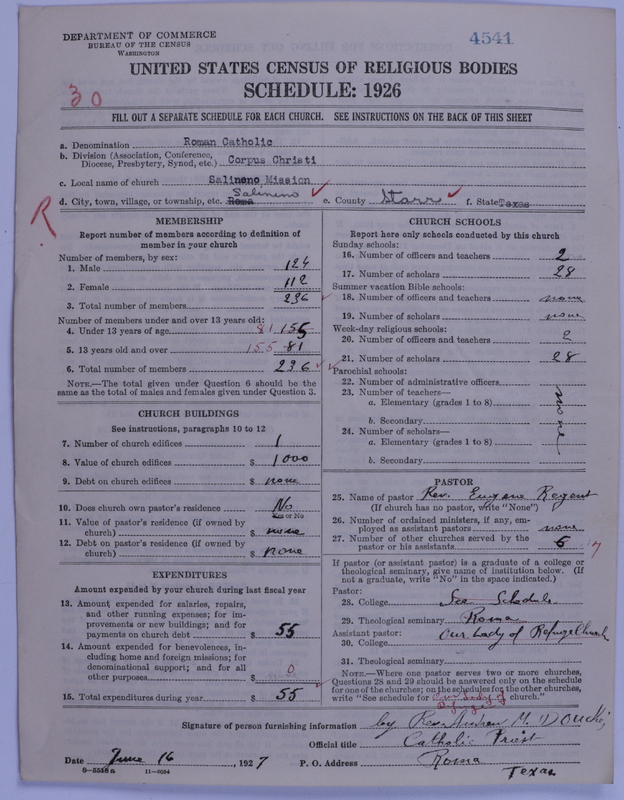 DEPARTMENT OF COMMERCE
BUREAU OF THE CENSUS
WASHINGTON
4541
UNITED STATES CENSUS OF RELIGIOUS BODIES
SCHEDULE: 1926
30
FILL OUT A SEPARATE SCHEDULE FOR EACH CHURCH. SEE INSTRUCTIONS ON THE BACK OF THIS SHEET
a. Denomination Roman Catholic
b. Division (Association, Conference, Diocese, Presbytery, Synod, etc.) Corpus Christi
c. Local name of church Salineno Mission
d. City, town, village, or township, etc. Roma Salineno e. County Starr f. State Texas
R
MEMBERSHIP
Report number of members according to definition of
member in your church
Number of members, by sex:
1. Male 124
2. Female 112
3. Total number of members 236
Number of members under and over 13 years old:
4. Under 13 years of age 81 155
5. 13 years old and over 155 81
6. Total number of members 236
NOTE.—The total given under Question 6 should be the
same as the total of males and females given under Question 3.
CHURCH BUILDINGS
See instructions, paragraphs 10 to 12
7. Number of church edifices 1
8. Value of church edifices $ 1000
9. Debt on church edifices $ none
10. Does church own pastor's residence? No
Yes or No
11. Value of pastor's residence (if owned by
church) $ none
12. Debt on pastor's residence (if owned by
church) $ none
EXPENDITURES
Amount expended by your church during last fiscal year
13. Amount expended for salaries, repairs,
and other running expenses; for im-
provements or new buildings; and for
payments on church debt $ 55
14. Amount expended for benevolences, in-
cluding home and foreign missions; for
denominational support; and for all
other purposes $ 0
15. Total expenditures during year $ 55
CHURCH SCHOOLS
Report here only schools conducted by this church
Sunday schools:
16. Number of officers and teachers 2
17. Number of scholars 28
Summer vacation Bible schools:
18. Number of officers and teachers none
19. Number of scholars none
Week-day religious schools:
20. Number of officers and teachers 2
21. Number of scholars 28
Parochial schools:
22. Number of administrative officers
23. Number of teachers—
a. Elementary (grades 1 to 8)
b. Secondary
none
24. Number of scholars—
a. Elementary (grades 1 to 8)
b. Secondary
PASTOR
25. Name of pastor Rev. Eugene Regent
(If church has no pastor, write "None")
26. Number of ordained ministers, if any, em-
ployed as assistant pastors none
27. Number of other churches served by the
pastor or his assistants 6 7
If pastor (or assistant pastor) is a graduate of a college or
theological seminary, give name of institution below. (If
not a graduate, write "No" in the space indicated.)
Pastor:
28. College See Schedule
29. Theological seminary Roma
Assistant pastor: Our Lady of Refuge Church
30. College
31. Theological seminary
NOTE.—Where one pastor serves two or more churches,
Questions 28 and 29 should be answered only on the schedule
for one of the churches; on the schedules for the other churches,
write "See schedule for Our Lady of Refuge church."
Signature of person furnishing information by Rev. M.
Official title Catholic Priest
Date June 16, 1927 P. O. Address Roma
Texas
8—5518a 11—9034